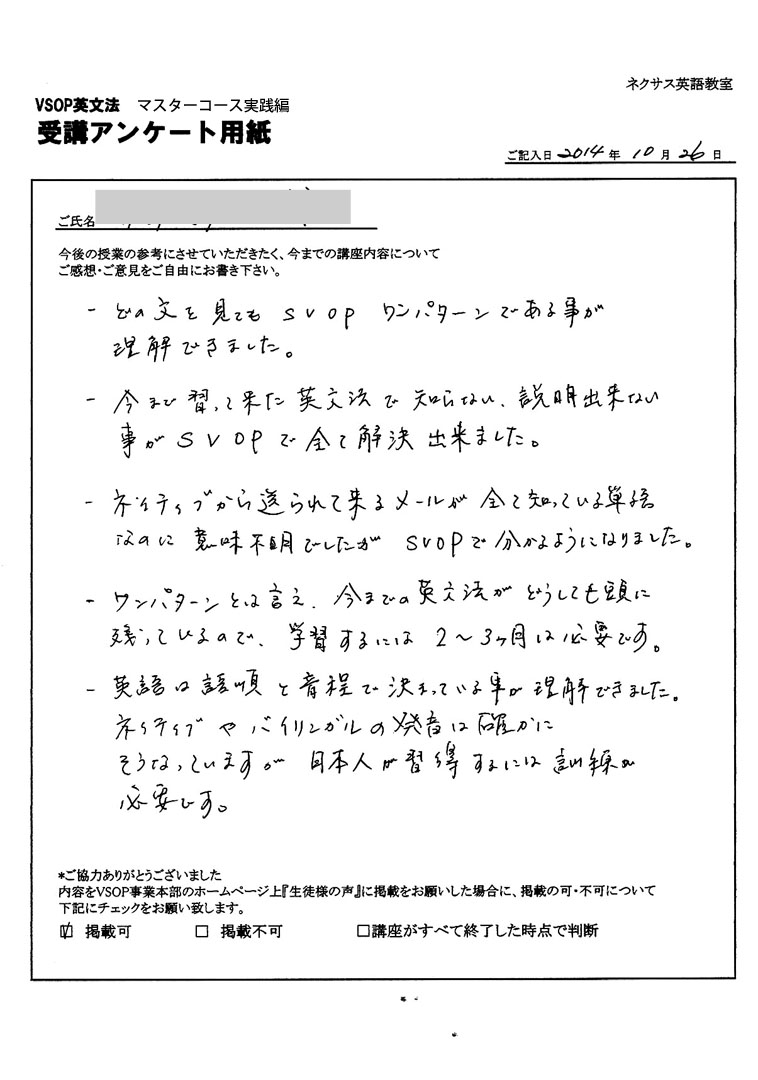 ネクサス英語教室
VSOP英文法 マスターコース実践編
受講アンケート用紙
ご記入日 2014 年 10 月 26 日
ご氏名
今後の授業の参考にさせていただきたく、今までの講座内容について
ご感想・ご意見をご自由にお書き下さい。
- どの文を見ても SVOP ワンパターンである事が
理解できました。
- 今まで習って来た英文法で知らない、説明出来ない
事がSVOPで全て解決出来ました。
- ネイティブから送られて来るメールが全て知っている単語
なのに意味不明でしたがSVOPで分かるようになりました。
- ワンパターンとは言え、今までの英文法がどうしても頭に
残っているので、学習するには2〜3ヶ月は必要です。
- 英語は語順と音程で決まっている事が理解できました。
ネイティブやバイリンガルの発音は確かに
そうなっていますが日本人が習得するには訓練が
必要です。
*ご協力ありがとうございました
内容をVSOP事業本部のホームページ上『生徒様の声』に掲載をお願いした場合に、掲載の可・不可について
下記にチェックをお願い致します。
☑ 掲載可 □ 掲載不可 □講座がすべて終了した時点で判断